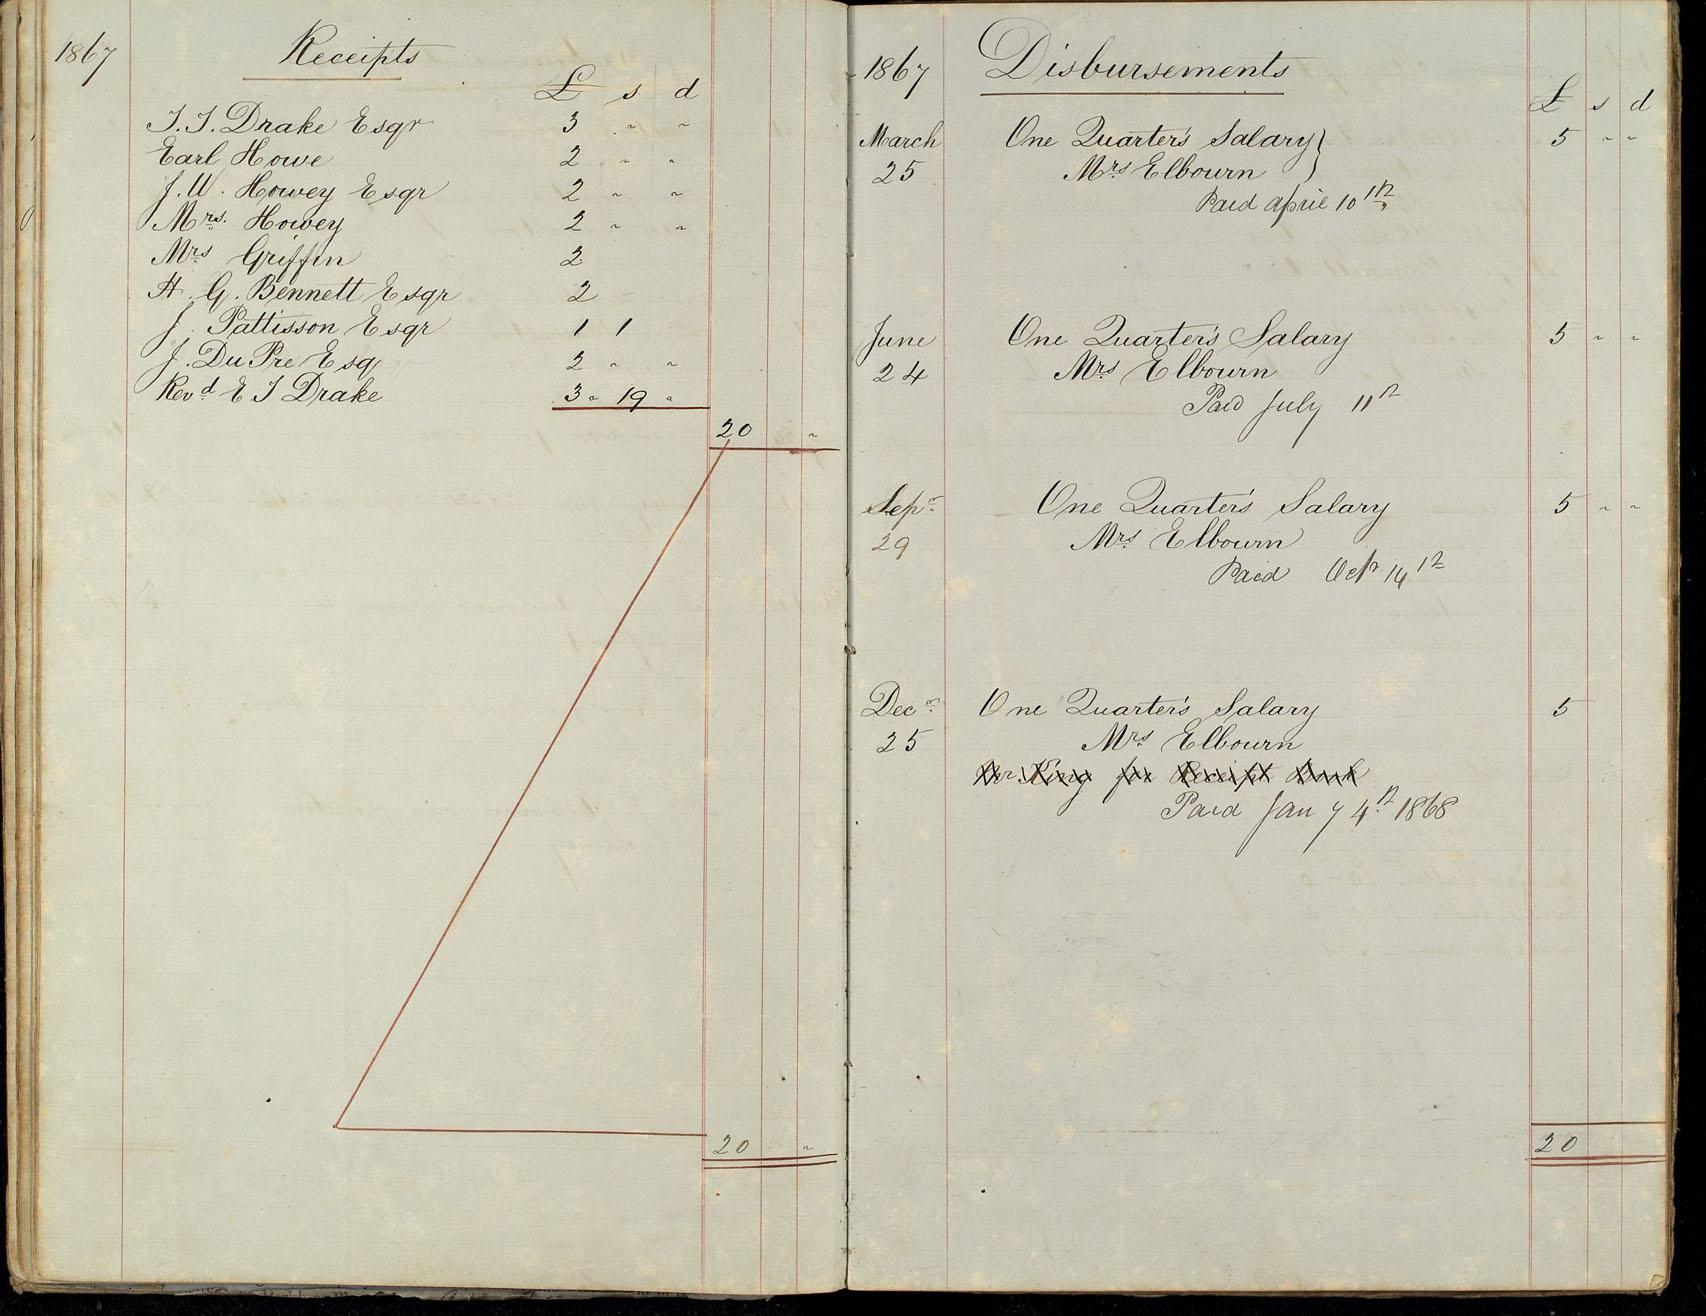 1867 Receipts
£ s d
T. T. Drake Esqr 3 " "
Earl Howe 2 " "
J. W. Howey Esqr 2 " "
Mrs. Howey 2 " "
Mrs Griffin 2
H. G. Bennett Esqr 2
J. Pattisson Esqr 1 1
J. Du Pre Esq 2 " "
Revd E T Drake 3 " 19 "
20 "
20 "
1867 Disbursements
£ s d
March One Quarter's Salary } 5 " "
25 Mrs Elbourn
Paid april 10th
June One Quarter's Salary 5 " "
24 Mrs Elbourn
Paid July 11th
Sepr One Quarter's Salary 5 " "
29 Mrs Elbourn
Paid Octr 14th
Decr One Quarter's Salary 5
25 Mrs Elbourn
King for Receipt Book
Paid Jan y 4th 1868
20